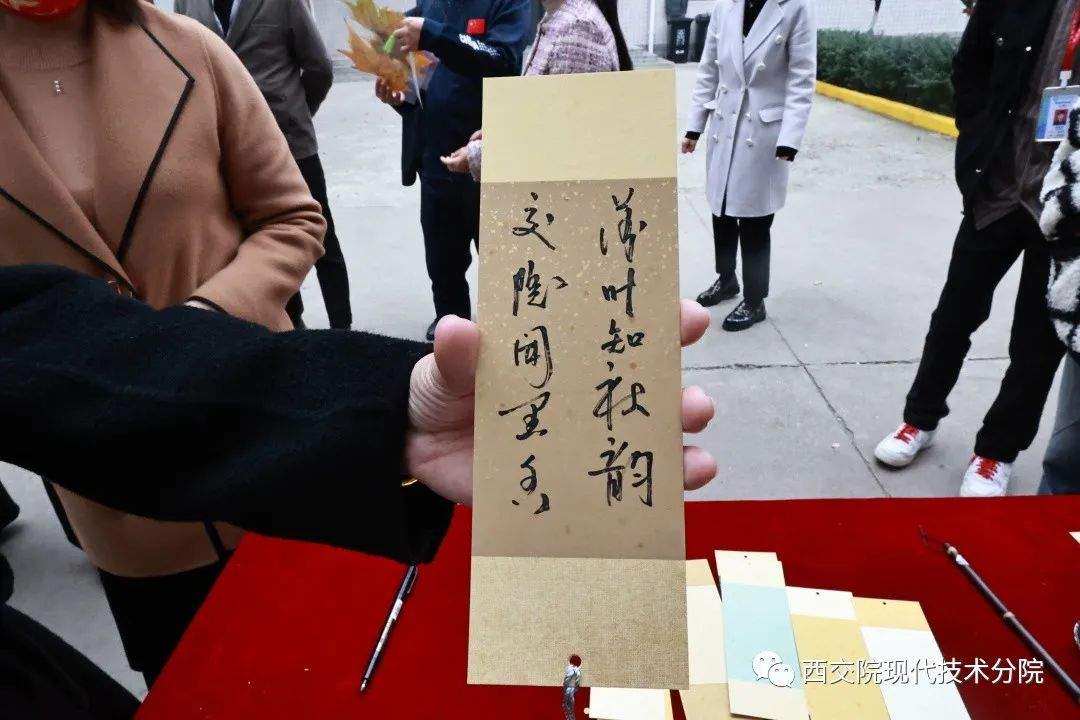 落叶知秋韵
交院闻墨香
西交院现代技术分院